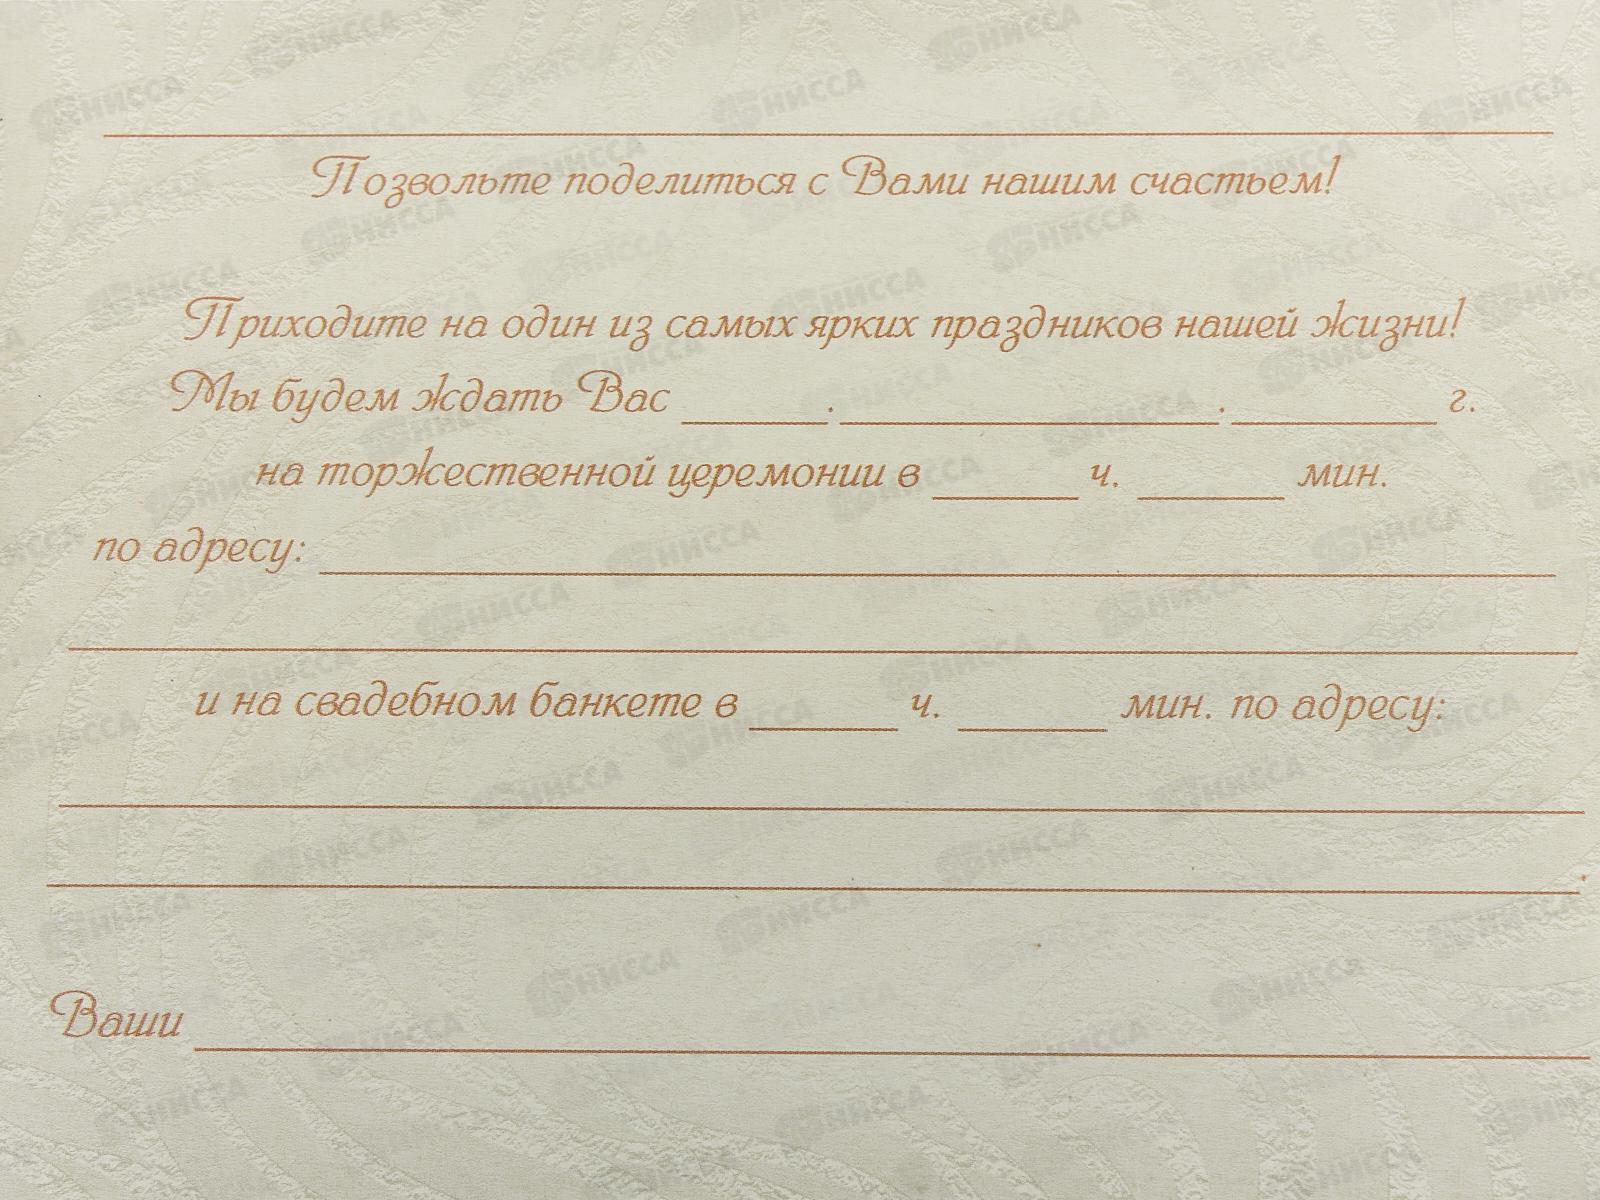 Позвольте поделиться с Вами нашим счастьем!
Приходите на один из самых ярких праздников нашей жизни!
Мы будем ждать Вас ______.______________.________ г.
на торжественной церемонии в ______ ч. ______ мин.
по адресу:
и на свадебном банкете в ______ ч. ______ мин. по адресу:
Ваши
НИССА